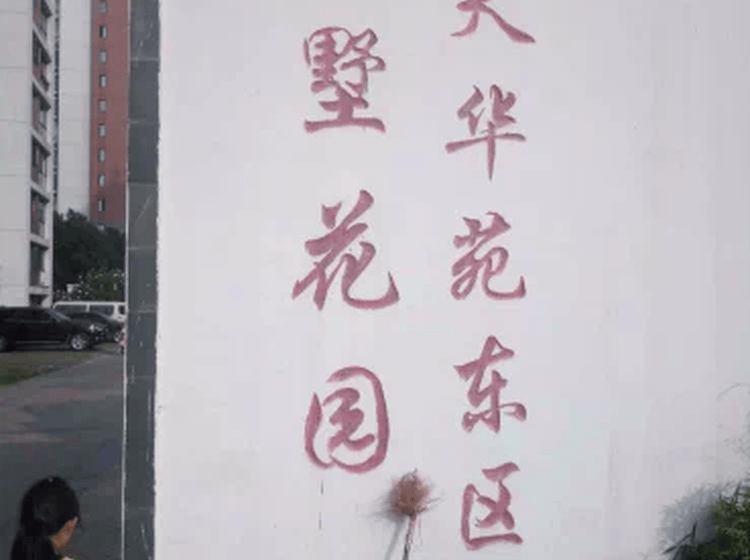 华苑东区
墅花园